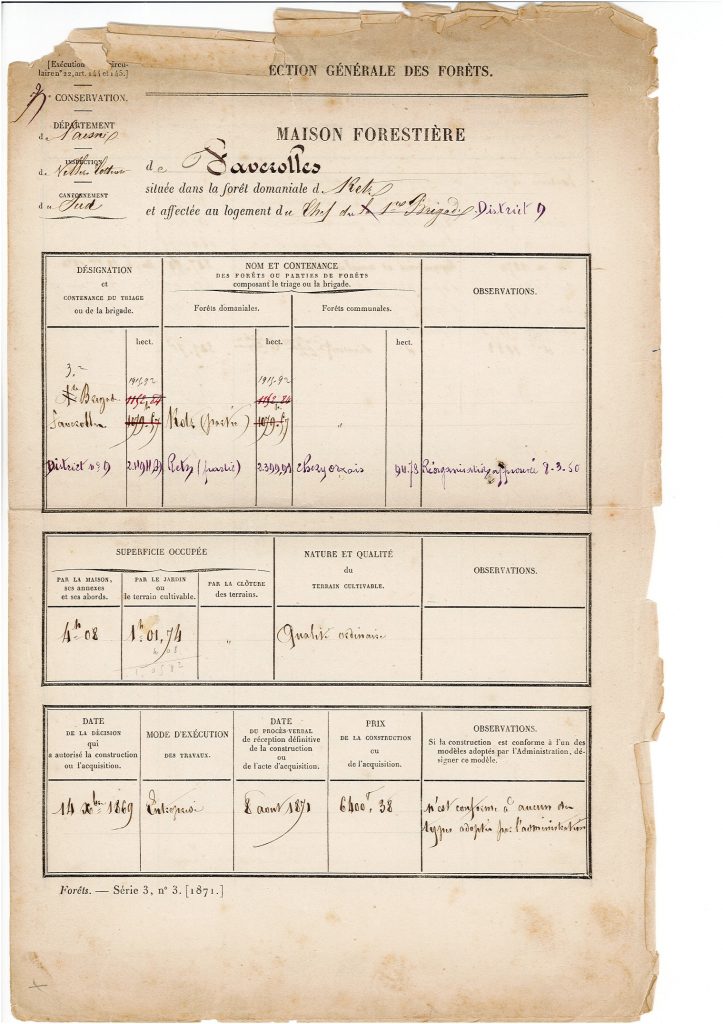 [Exécution circu-
laire nº 22, art. 144 et 145.]
ECTION GÉNÉRALE DES FORÊTS.
CONSERVATION.
DÉPARTEMENT
de l'aisne
INSPECTION
de Villers
CANTONNEMENT
du Sud
MAISON FORESTIÈRE
de Faverolles
située dans la forêt domaniale d Retz
et affectée au logement du Chef du 1re Brigade District 9
DÉSIGNATION
et
CONTENANCE DU TRIAGE
ou de la brigade.
NOM ET CONTENANCE
DES FORÊTS OU PARTIES DE FORÊTS
composant le triage ou la brigade.
Forêts domaniales.
Forêts communales.
OBSERVATIONS.
hect. hect. hect.
3.-
1915.92 1915.92
Brigade 1152.24 1152.24
Faverolles 1079.57 Retz (partie) 1079.57 "
District nº 9 Retz (partie) 94.73 Réorganisation approuvée 8-3-50
SUPERFICIE OCCUPÉE
PAR LA MAISON,
ses annexes
et ses abords.
PAR LE JARDIN
ou
le terrain cultivable.
PAR LA CLÔTURE
des terrains.
NATURE ET QUALITÉ
du
TERRAIN CULTIVABLE.
OBSERVATIONS.
4h 08 1h 01,74 " Qualité ordinaire
4 08
1.0582
DATE
DE LA DÉCISION
qui
a autorisé la construction
ou l'acquisition.
MODE D'EXÉCUTION
DES TRAVAUX.
DATE
DU PROCÈS-VERBAL
de réception définitive
de la construction
ou
de l'acte d'acquisition.
PRIX
DE LA CONSTRUCTION
ou
de l'acquisition.
OBSERVATIONS.
Si la construction est conforme à l'un des
modèles adoptés par l'Administration, dé-
signer ce modèle.
14 Xbre 1869 Entreprise 8 aout 1871 6400f 38 n'est conforme à aucun des
types adoptés par l'administration
Forêts. — Série 3, nº 3. [1871.]